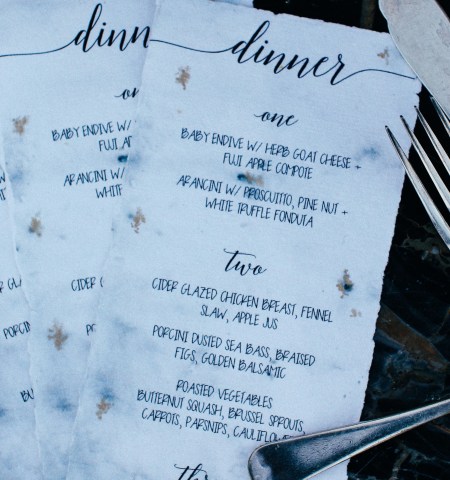 dinner
one
BABY ENDIVE W/ HERB GOAT CHEESE +
FUJI APPLE COMPOTE
ARANCINI W/ PROSCUITTO, PINE NUT +
WHITE TRUFFLE FONDUTA
two
CIDER GLAZED CHICKEN BREAST, FENNEL
SLAW, APPLE JUS
PORCINI DUSTED SEA BASS, BRAISED
FIGS, GOLDEN BALSAMIC
ROASTED VEGETABLES
BUTTERNUT SQUASH, BRUSSEL SPROUTS,
CARROTS, PARSNIPS, CAULIFLOWER
dinn
on
BABY ENDIVE W/
FUJI AP
ARANCINI W/
WHITE
CIDER
PORCIN
BU